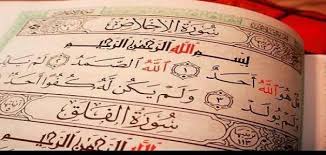 سُورَةُ الإِخْلَاصِ
بِسْمِ اللَّهِ الرَّحْمَٰنِ الرَّحِيمِ
قُلْ هُوَ اللَّهُ أَحَدٌ ١ اللَّهُ الصَّمَدُ ٢ لَمْ
وَلَمْ يُولَدْ ٣ وَلَمْ يَكُن لَّهُ كُفُوًا أَحَدٌ
سُورَةُ الْفَلَقِ
بِسْمِ اللَّهِ الرَّحْمَٰنِ الرَّحِيمِ